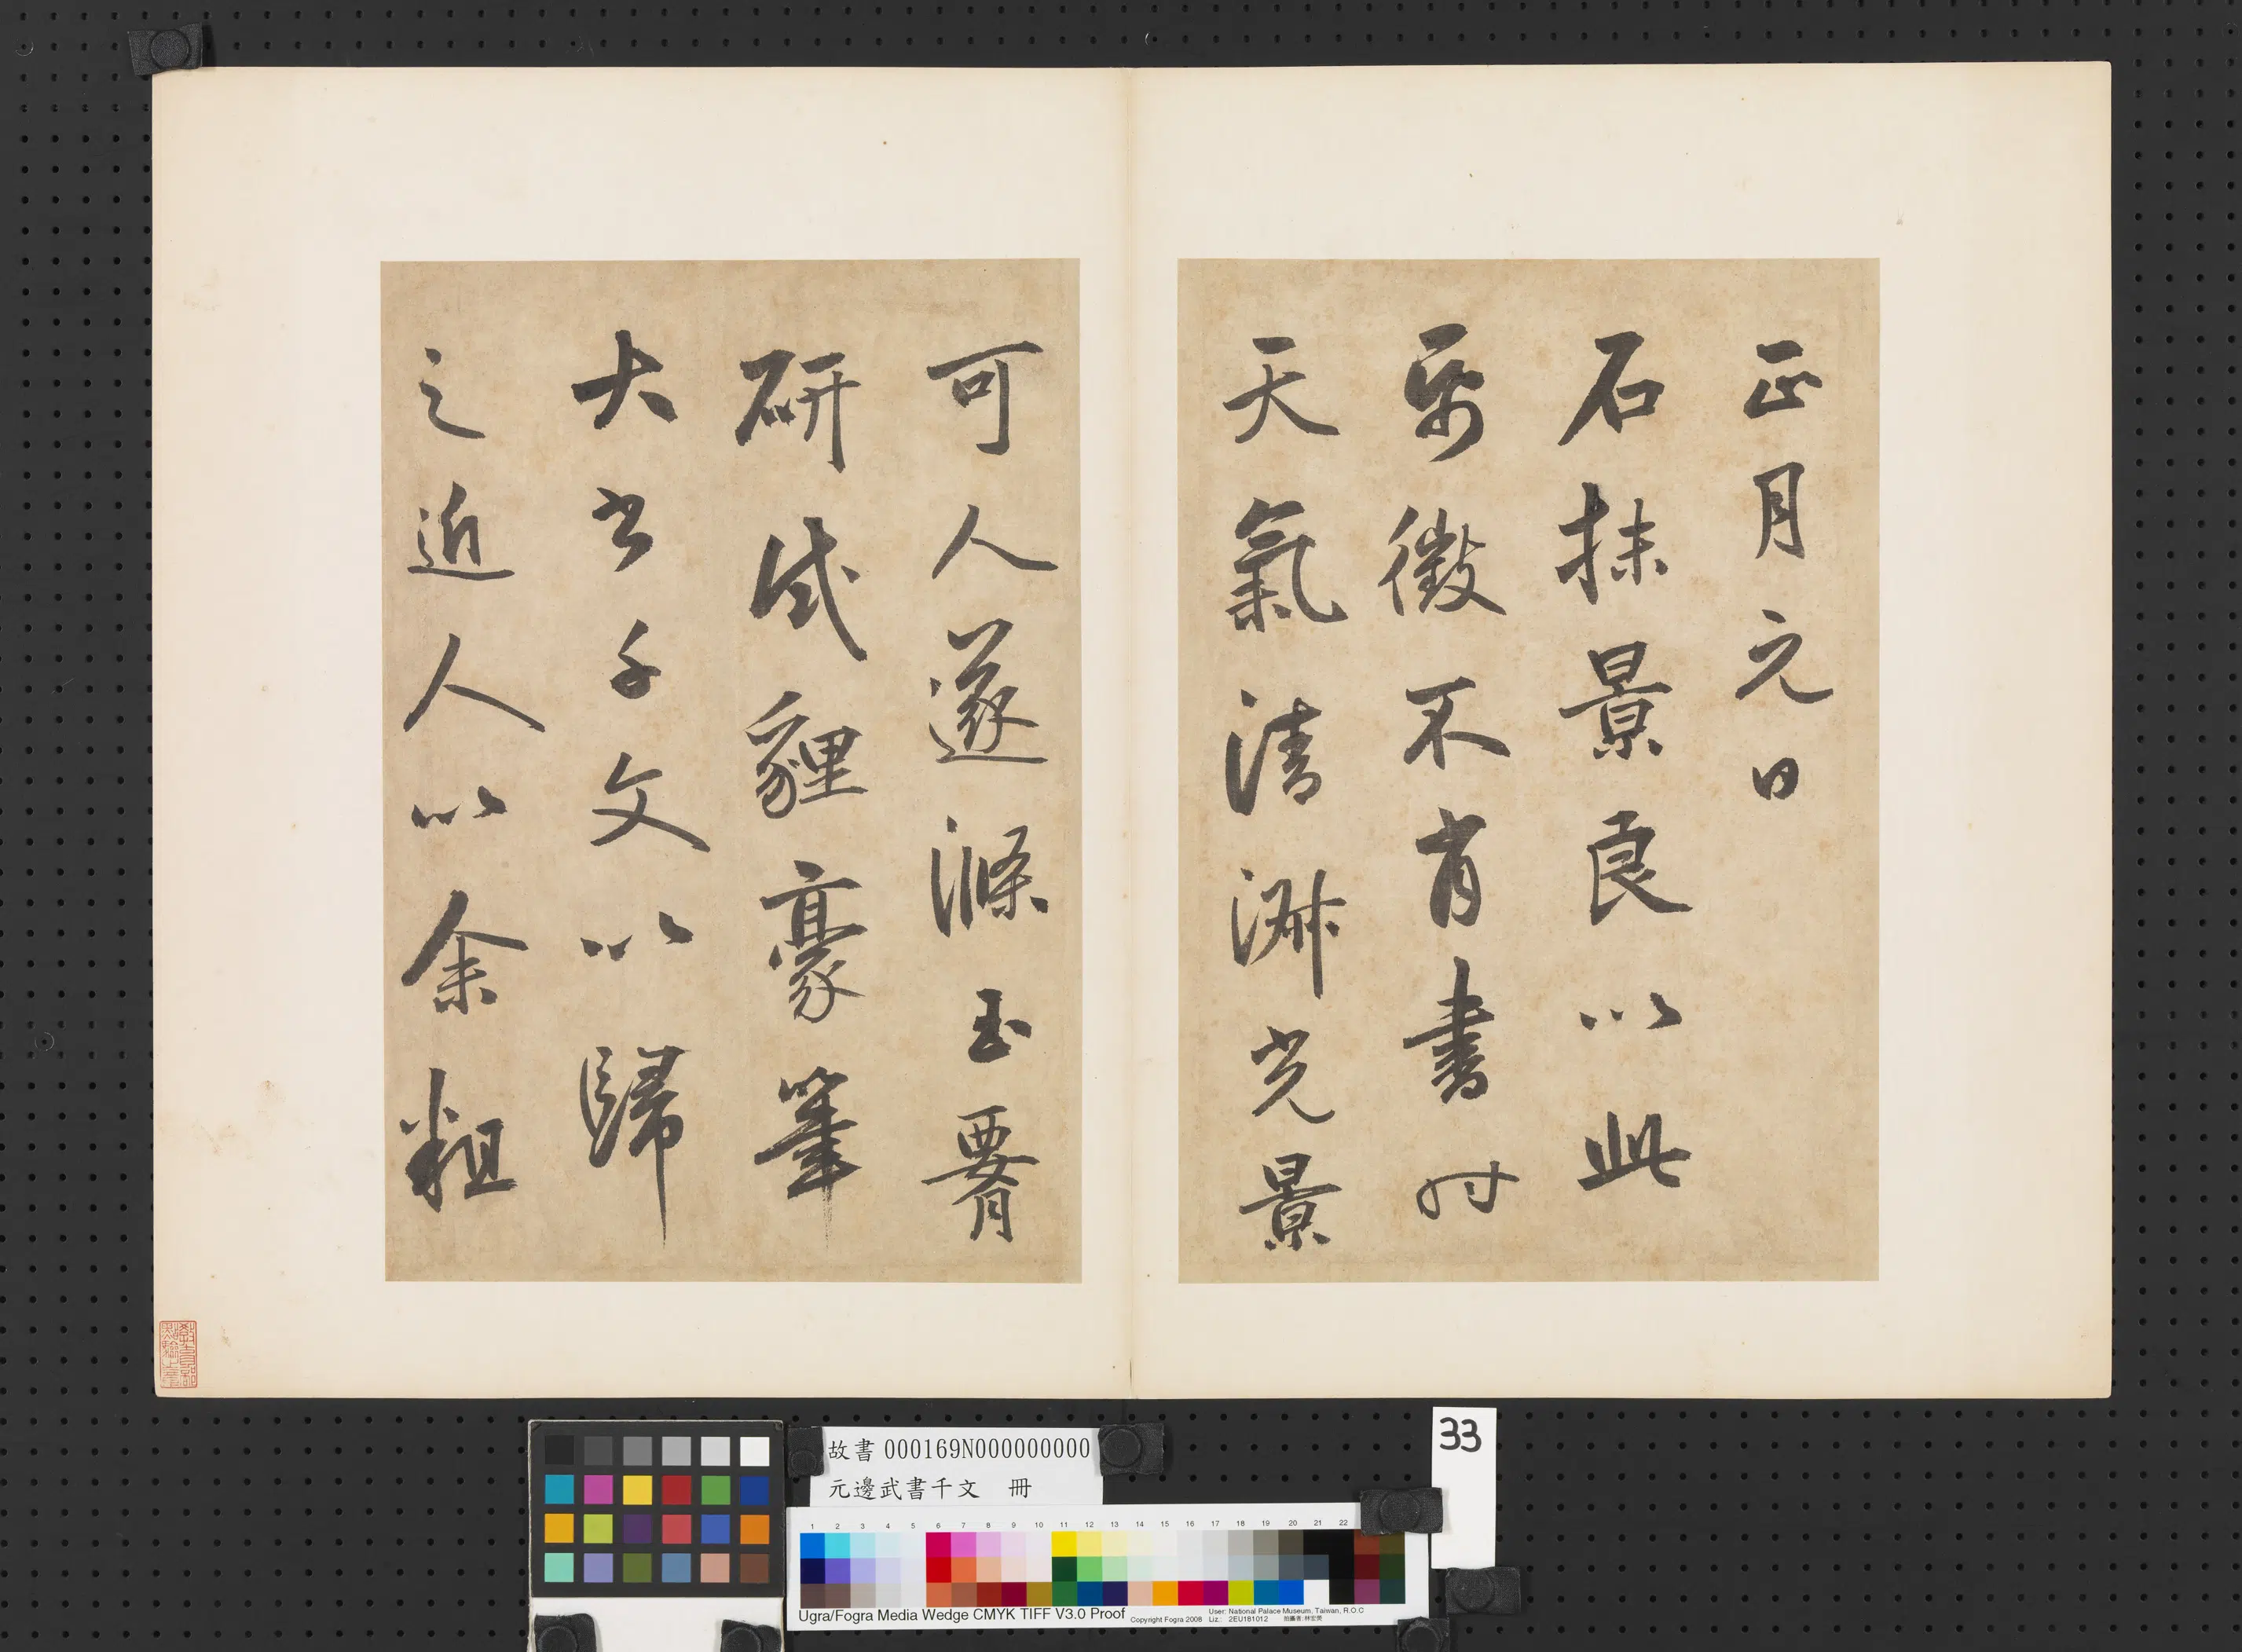 正月元日
石抹景良以此
帋徵不肖書時
天氣清淑光景
可人遂滌玉
研試貍豪筆
大書千文以歸
之近人以余粗
33
故書 000169N000000000
元邊武書千文 冊
1 2 3 4 5 6 7 8 9 10 11 12 13 14 15 16 17 18 19 20 21 22
Ugra/Fogra Media Wedge CMYK TIFF V3.0 Proof
Copyright Fogra 2008
User: National Palace Museum, Taiwan, R.O.C
Liz.: 2EU181012